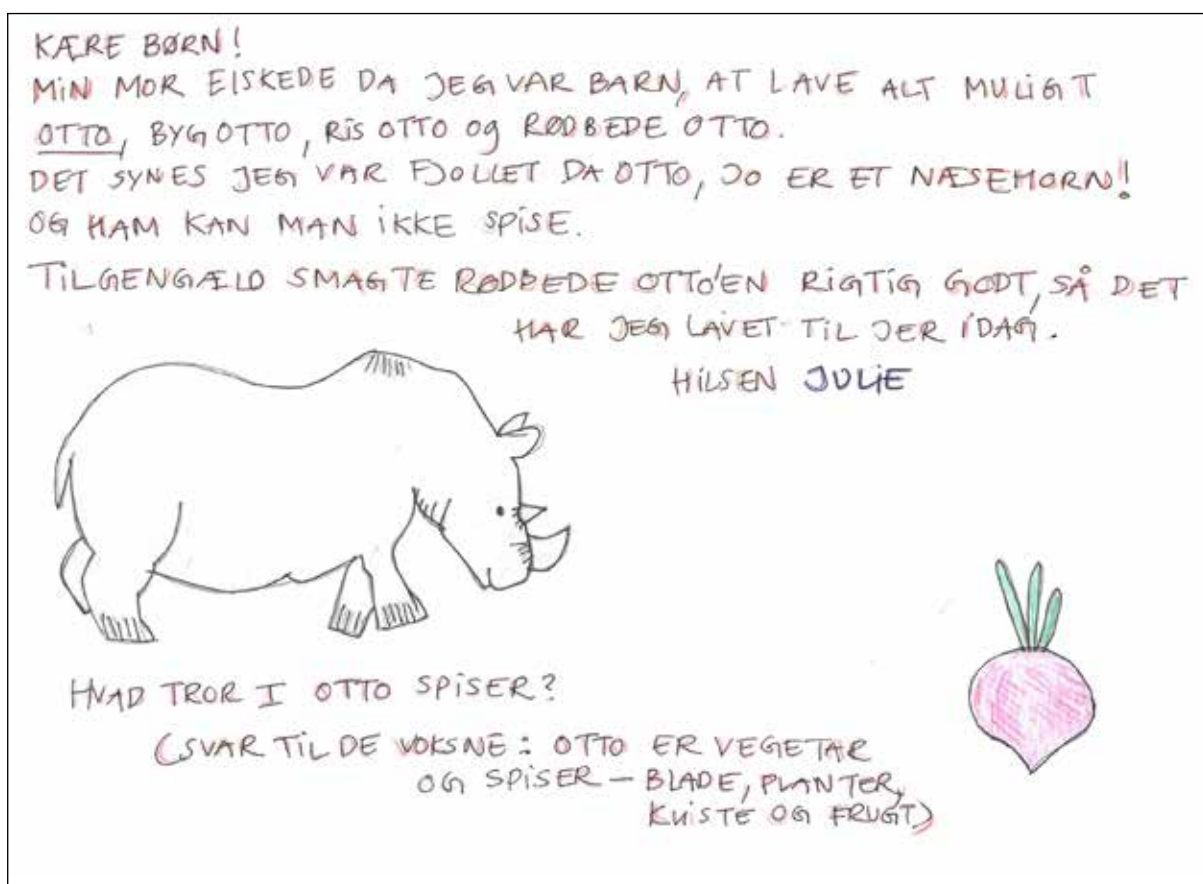 KÆRE BØRN!
MIN MOR ElSKEDE DA JEG VAR BARN, AT LAVE ALT MULIGT
OTTO, BYGOTTO, RIS OTTO Og RØDBEDE OTTO.
DET SYNES JEG VAR FJOLLET DA OTTO, JO ER ET NÆSEHORN!
OG HAM KAN MAN IKKE SPISE.
TILGENGÆLD SMAGTE RØDBEDE OTTO'EN RIGTIG GODT, SÅ DET
HAR JEG LAVET TIL JER IDAG.
HILSEN JULIE
HVAD TROR I OTTO SPISER?
(SVAR TIL DE VOKSNE: OTTO ER VEGETAR
OG SPISER – BLADE, PLANTER,
KVISTE OG FRUGT)